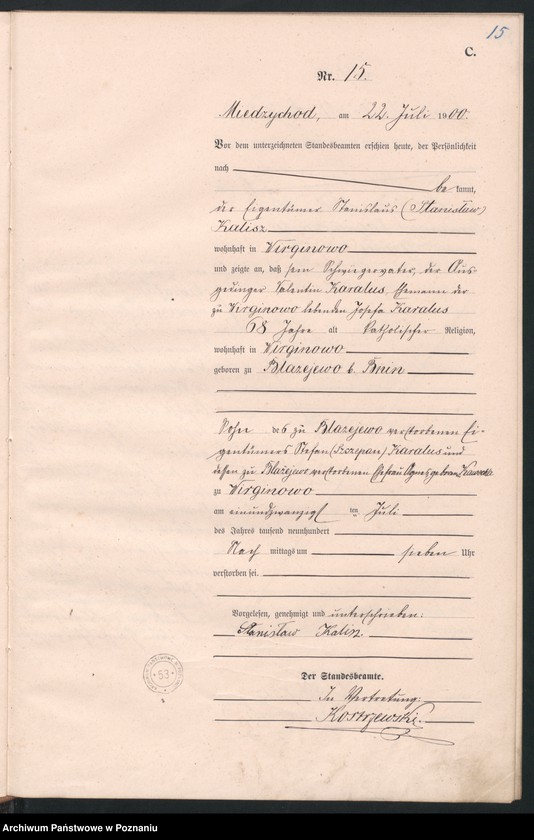 15
C.
Nr. 15.
Miedzychod, am 22. Juli 1900.
Vor dem unterzeichneten Standesbeamten erschien heute, der Persönlichkeit
nach
be kannt,
der Eigentümer Stanislaus (Stanisław)
Kalisz
wohnhaft in Wirginowo
und zeigte an, daß sein Schwiegervater, der Aus-
gedinger Valentin Karalus, Ehemann der
zu Wirginowo lebenden Josefa Karalus
68 Jahre alt katholischer Religion,
wohnhaft in Wirginowo
geboren zu Błażejewo b. Bnin
Sohn des zu Błażejewo verstorbenen Ei-
gentümers Stefan (Szczepan) Karalus und
dessen zu Błażejewo verstorbenen Ehefrau Agnes geboren
zu Wirginowo
am einundzwanzigsten Juli
des Jahres tausend neunhundert
Nach mittags um sieben Uhr
verstorben sei.
Vorgelesen, genehmigt und unterschrieben:
Stanisław Kalisz.
Der Standesbeamte.
In Vertretung:
Kostrzewski.
53
Archiwum Państwowe w Poznaniu